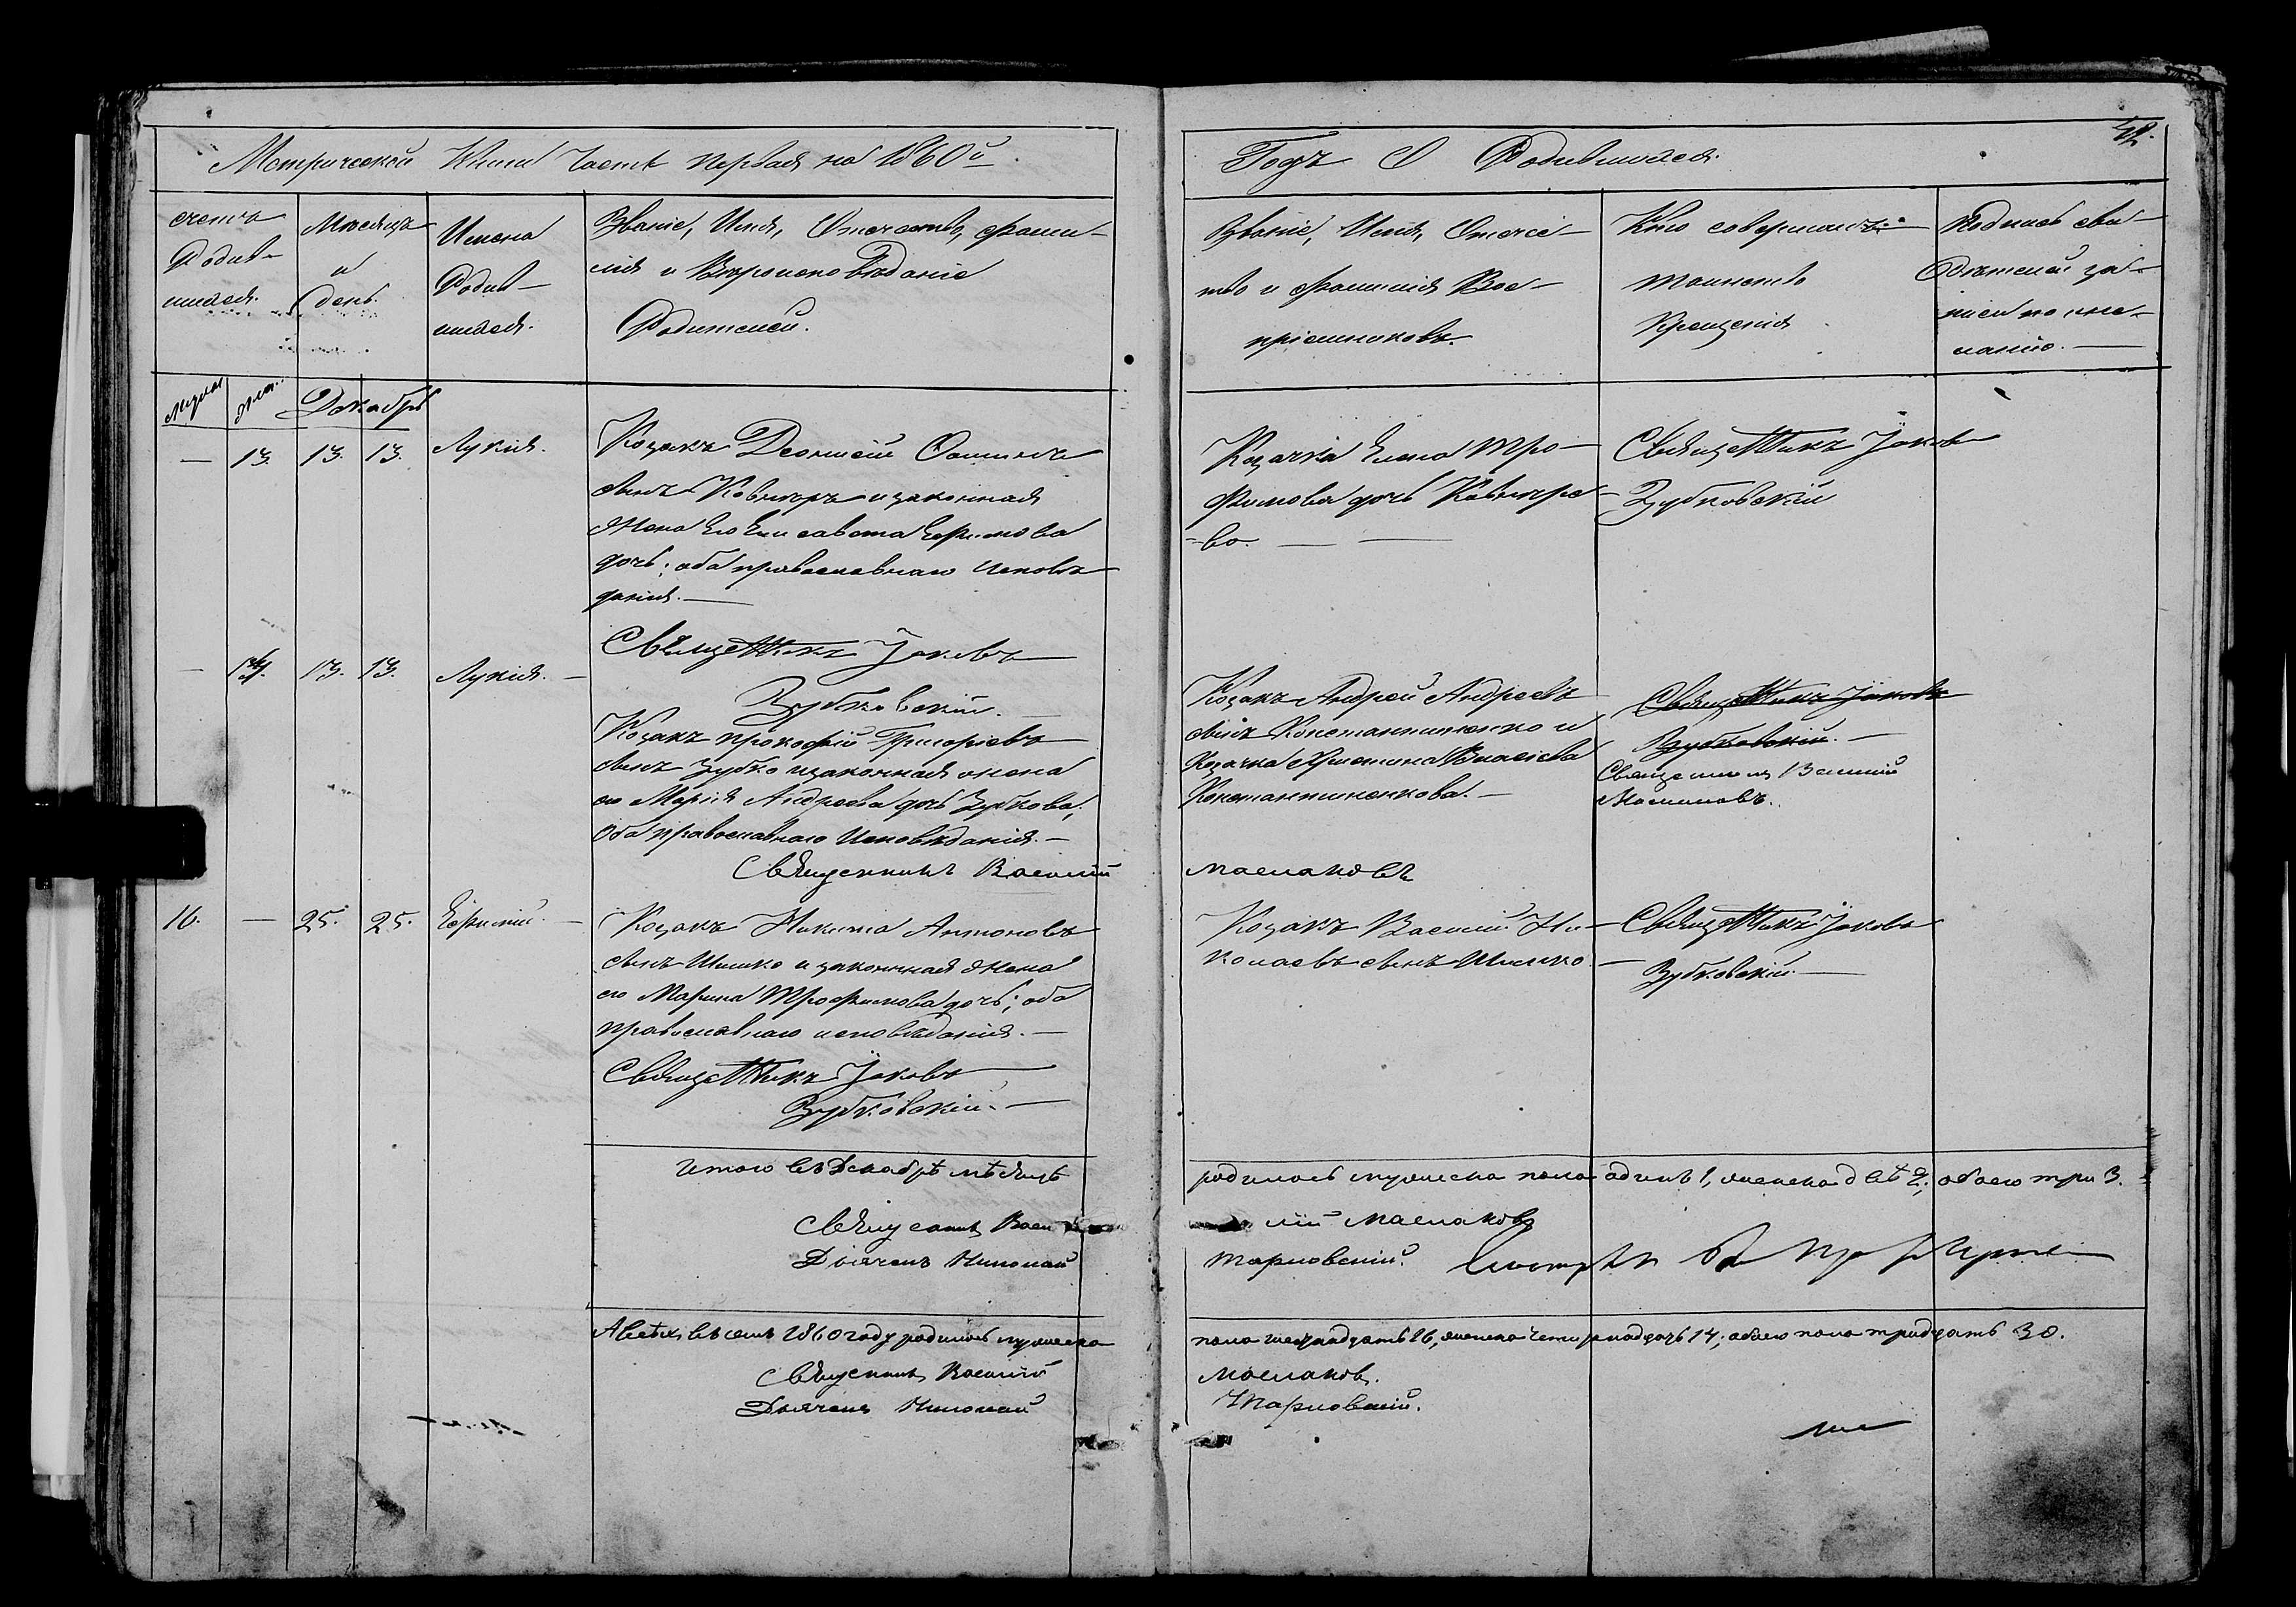 Метрической Книги Часть первая на 1860й
Годъ О Родившихся.
счетъ
Родив-
шихся.
Мѣсяцъ
и
день.
Имена
Родив-
шихся.
Званіе, Имя, Отечество, фами-
лія и Вѣроисповѣданіе
Родителей.
Званіе, Имя, Отече-
тво и фамилія Вос-
пріемниковъ.
Кто совершилъ
таинство
Крещенія
Подпись сви-
дѣтелей за-
писи по же-
ланію.
Муж.
Жен.
Декабрь
— 13. 13. 13. Лукія.
Козакъ Леонтій
сынъ Ковнеръ и законная
жена его Елисавета Ефимова
дочь; оба православнаго исповѣ-
данія.
Священникъ Іаковъ
Зубковскій.
Козачка Елена Тро-
фимова дочь
-ва.
Священникъ Іаковъ
Зубковскій
— 14. 13. 13. Лукія.
Козакъ Прокофій Григоріевъ
сынъ Зубко и законная жена
его Марія Андреева дочь Зубкова;
Оба православнаго Исповѣданія.
Священникъ Василій
Маслаковъ
Козакъ Андрей Андреевъ
сынъ Константиненко и
Козачка Христина Власіева
Константиненкова.
Священникъ Іаковъ
Зубковскій.
Священникъ Василій
Маслаковъ.
16. — 25. 25. Ефимій.
Козакъ Никита Антоновъ
сынъ Шишко и законная жена
его Марина Трофимова дочь; оба
православнаго исповѣданія.
Священникъ Іаковъ
Зубковскій.
Козакъ Василій Ни-
колаевъ сынъ Шишко.
Священникъ Іаковъ
Зубковскій.
Итого въ Декабрѣ мѣсяцѣ
родилось мужеска пола одинъ 1, женска двѣ 2; обоего три 3.
Священникъ Васи
лій Маслаковъ
Дьячекъ Николай
Тарновскій.
А всѣхъ въ семъ 1860 году родилось мужеска
пола шеснадцать 16, женска четырнадцать 14; обоего пола тридцать 30.
Священникъ Василій
Маслаковъ.
Дьячекъ Николай
Тарновскій.